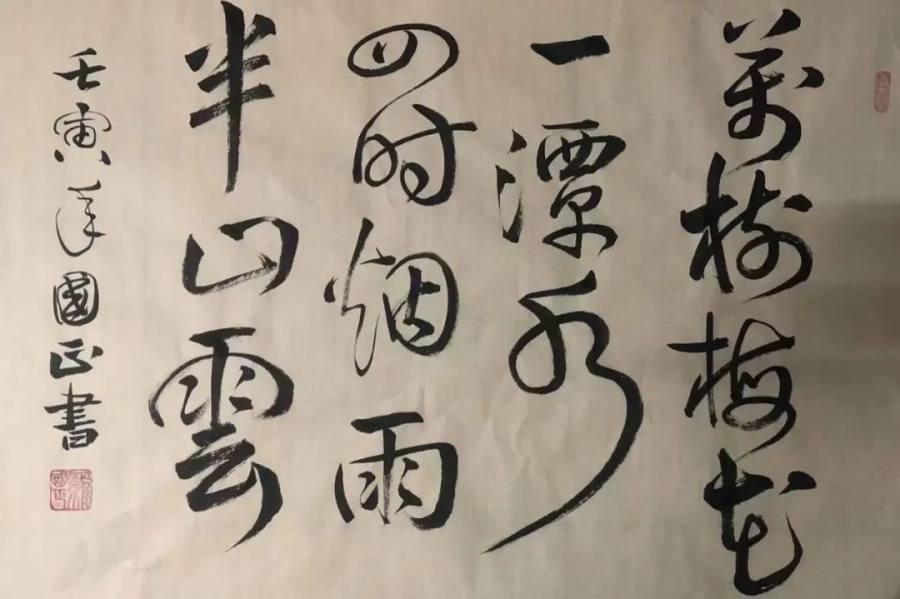 萬树梅花
一潭水
四时烟雨
半山雲
壬寅年國正書